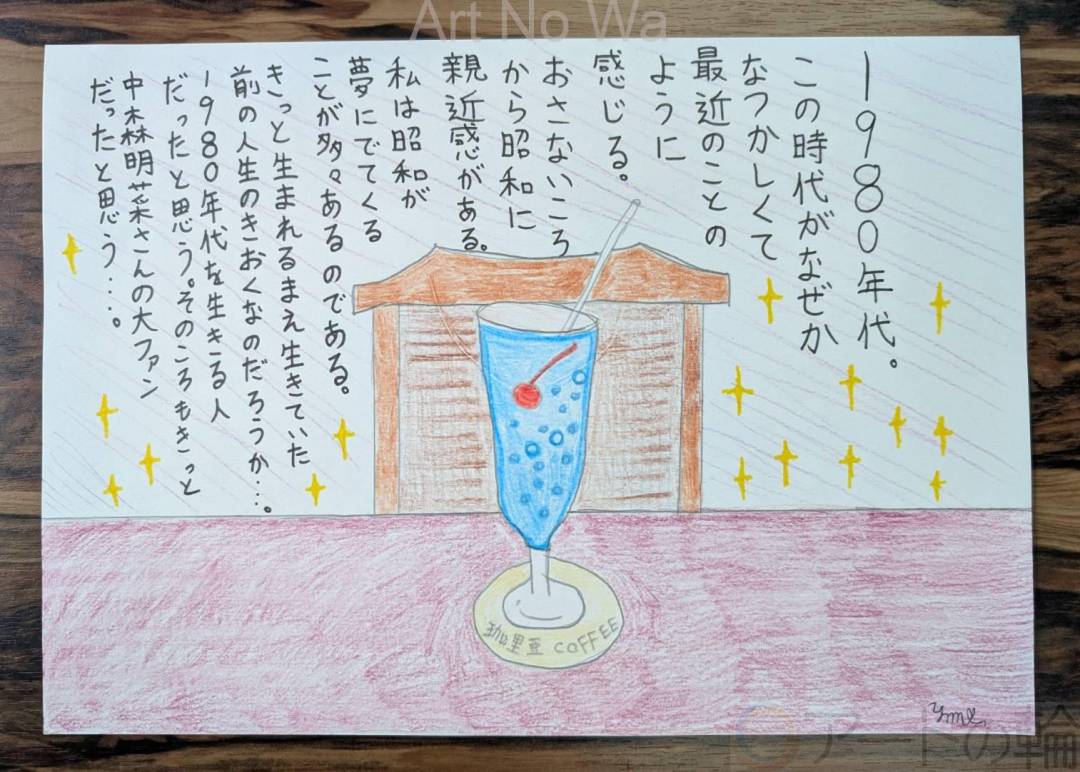 Art No Wa
1980年代。
この時代がなぜか
なつかしくて
最近のことの
ように
感じる。
おさないころ
から昭和に
親近感がある。
私は昭和が
夢にでてくる
ことが多々あるのである。
きっと生まれるまえ生きていた
前の人生のきおくなのだろうか…。
1980年代を生きる人
だったと思う。そのころもきっと
中森明菜さんの大ファン
だったと思う…。
珈里亜 COFFEE
アートの輪